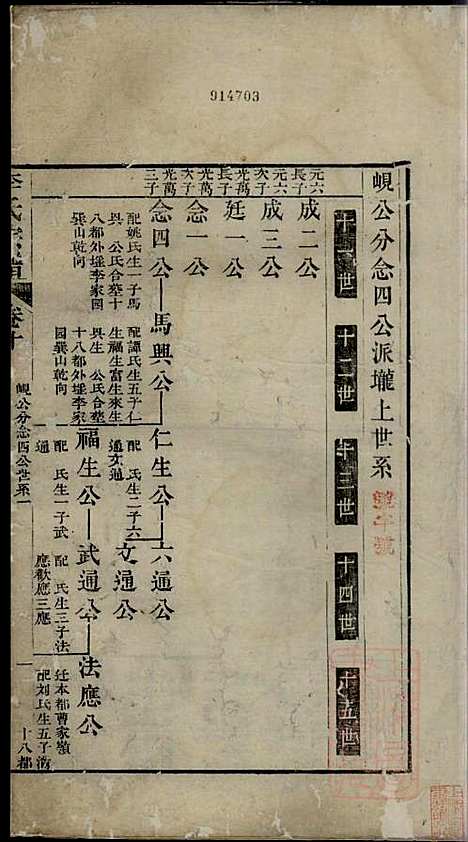 914703
峴公分念四公派壠上世系
十一世
十二世
十三世
十四世
十五世
元六次子
成二公
元六長子
成三公
光萬次子
廷一公
光萬長子
念一公
光萬三子
念四公
馬興公
仁生公
六通公
文通公
配姚氏生一子馬
興 公氏合塟十
八都外堘李家園
巽山乾向
配譚氏生五子仁
生福生富生來生
興生 公氏合塟
十八都外堘李家
園巽山乾向
配 氏生二子六
通文通
福生公
武通公
法應公
配 氏生一子武
通
配 氏生三子法
應歡應三應
迁本都曹家嶺
配刘氏生五子
十八都
卷十
峴公分念四公世系一
一